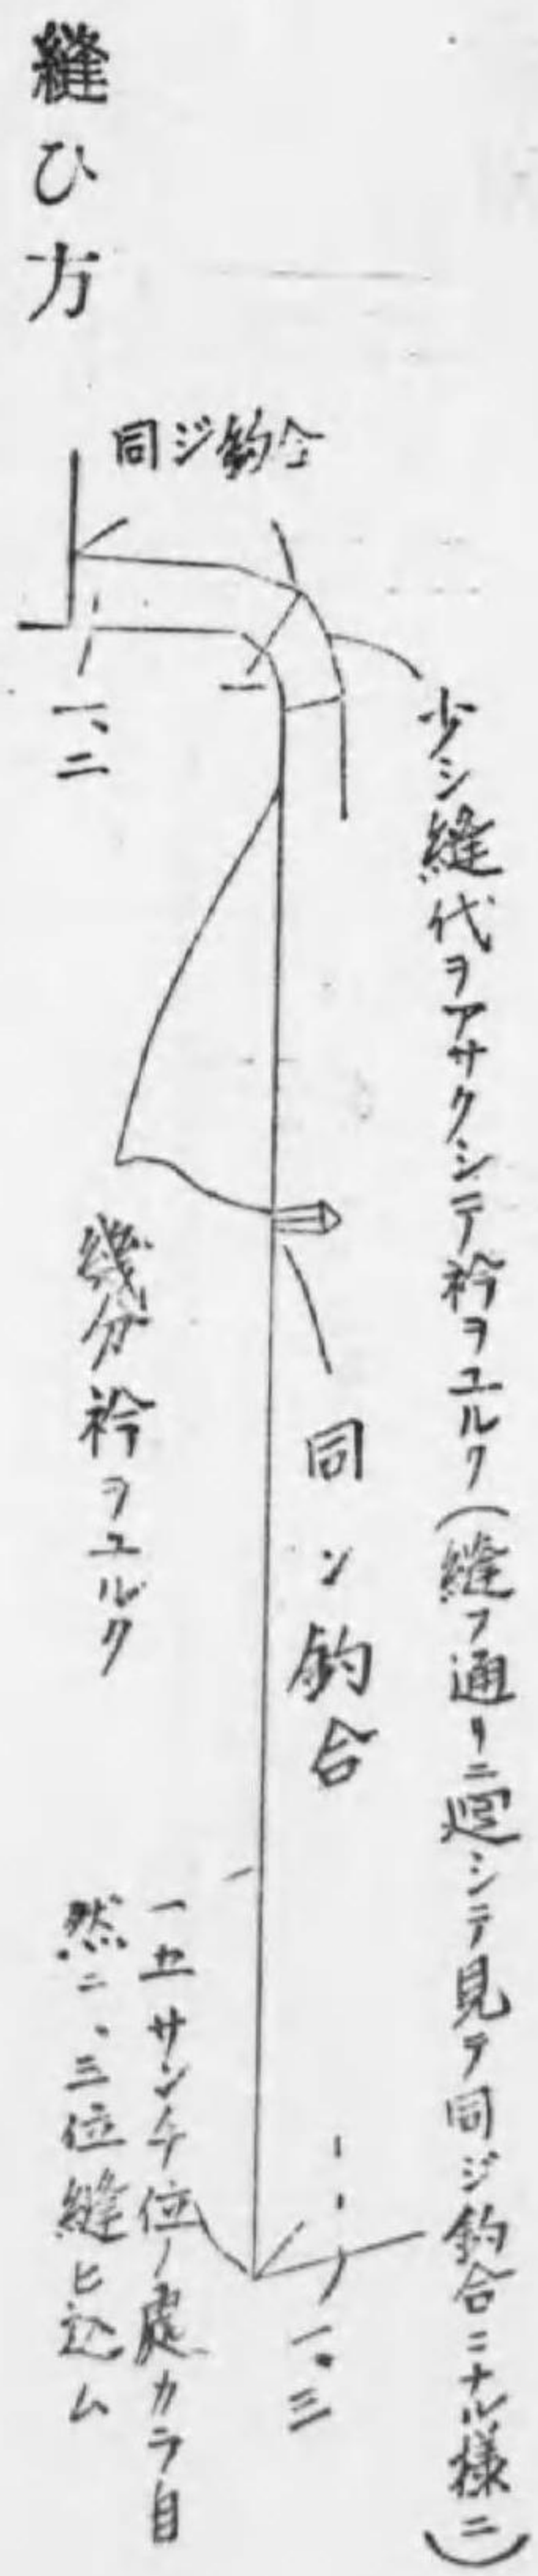 縫ひ方
同ジ釣合
少シ縫代ヲアサクシテ衿ヲユルク(縫フ通リニ廻シテ見テ同ジ釣合ニナル様ニ)
一、二
同ジ釣合
幾分衿ヲユルク
一、三
一五サンチ位ノ處カラ自
然ニ、三位縫ヒ込ム